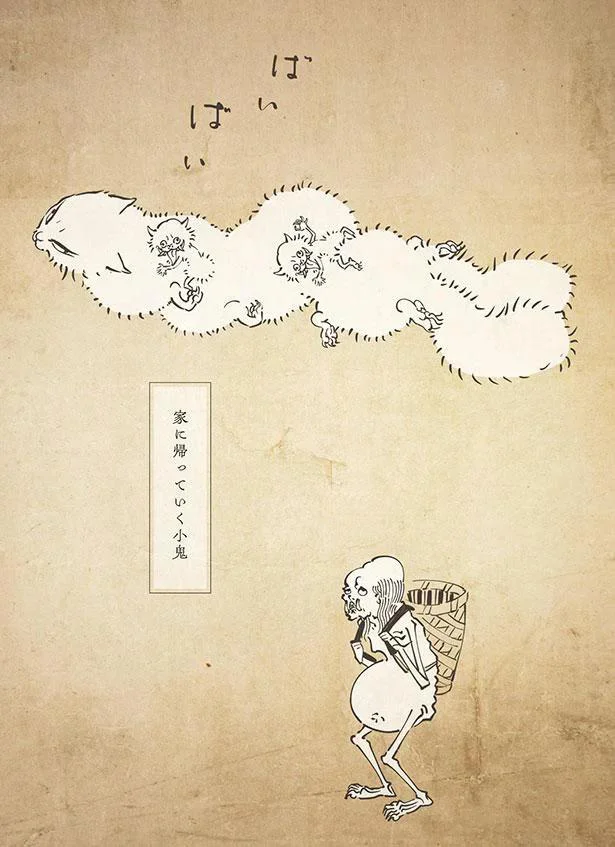 ばい
ばい
家に帰っていく小鬼